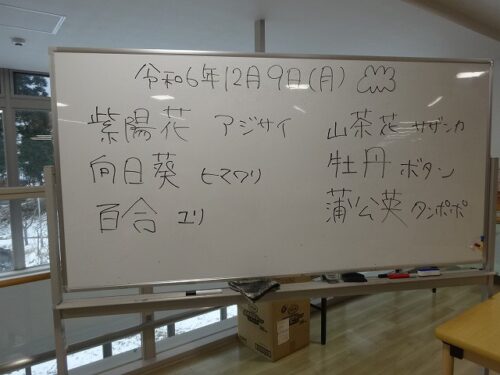 令和6年12月9日(月)
紫陽花 アジサイ
向日葵 ヒマワリ
百合 ユリ
山茶花 サザンカ
牡丹 ボタン
蒲公英 タンポポ